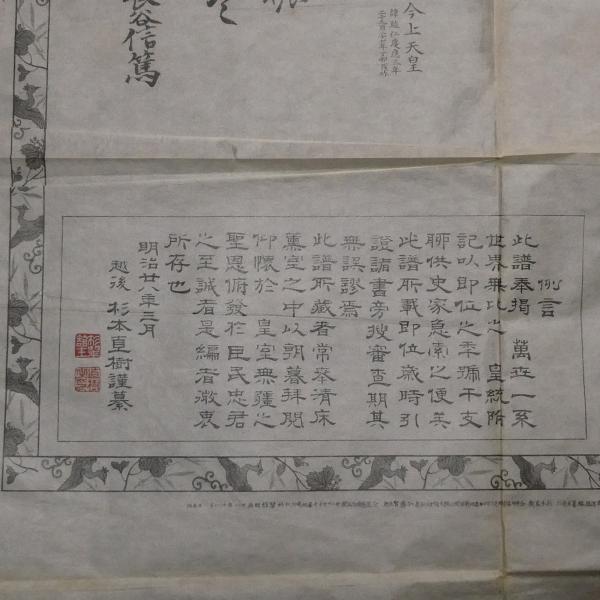 今上天皇
諱睦仁慶應三年
長谷信篤
例言
此譜奉揭 萬世一系
世界無比之 皇統所
記以即位之年號干支
聊供史家急索之便矣
此譜所載即位歲時引
證諸書旁搜審查期其
無誤謬焉
此譜所藏者常奉清床
薰室之中以朝暮拜閱
仰懷於 皇室無疆之
聖恩俯發於臣民忠君
之至誠者是編者微衷
所存也
明治廿八年三月
越後 杉本直樹謹纂